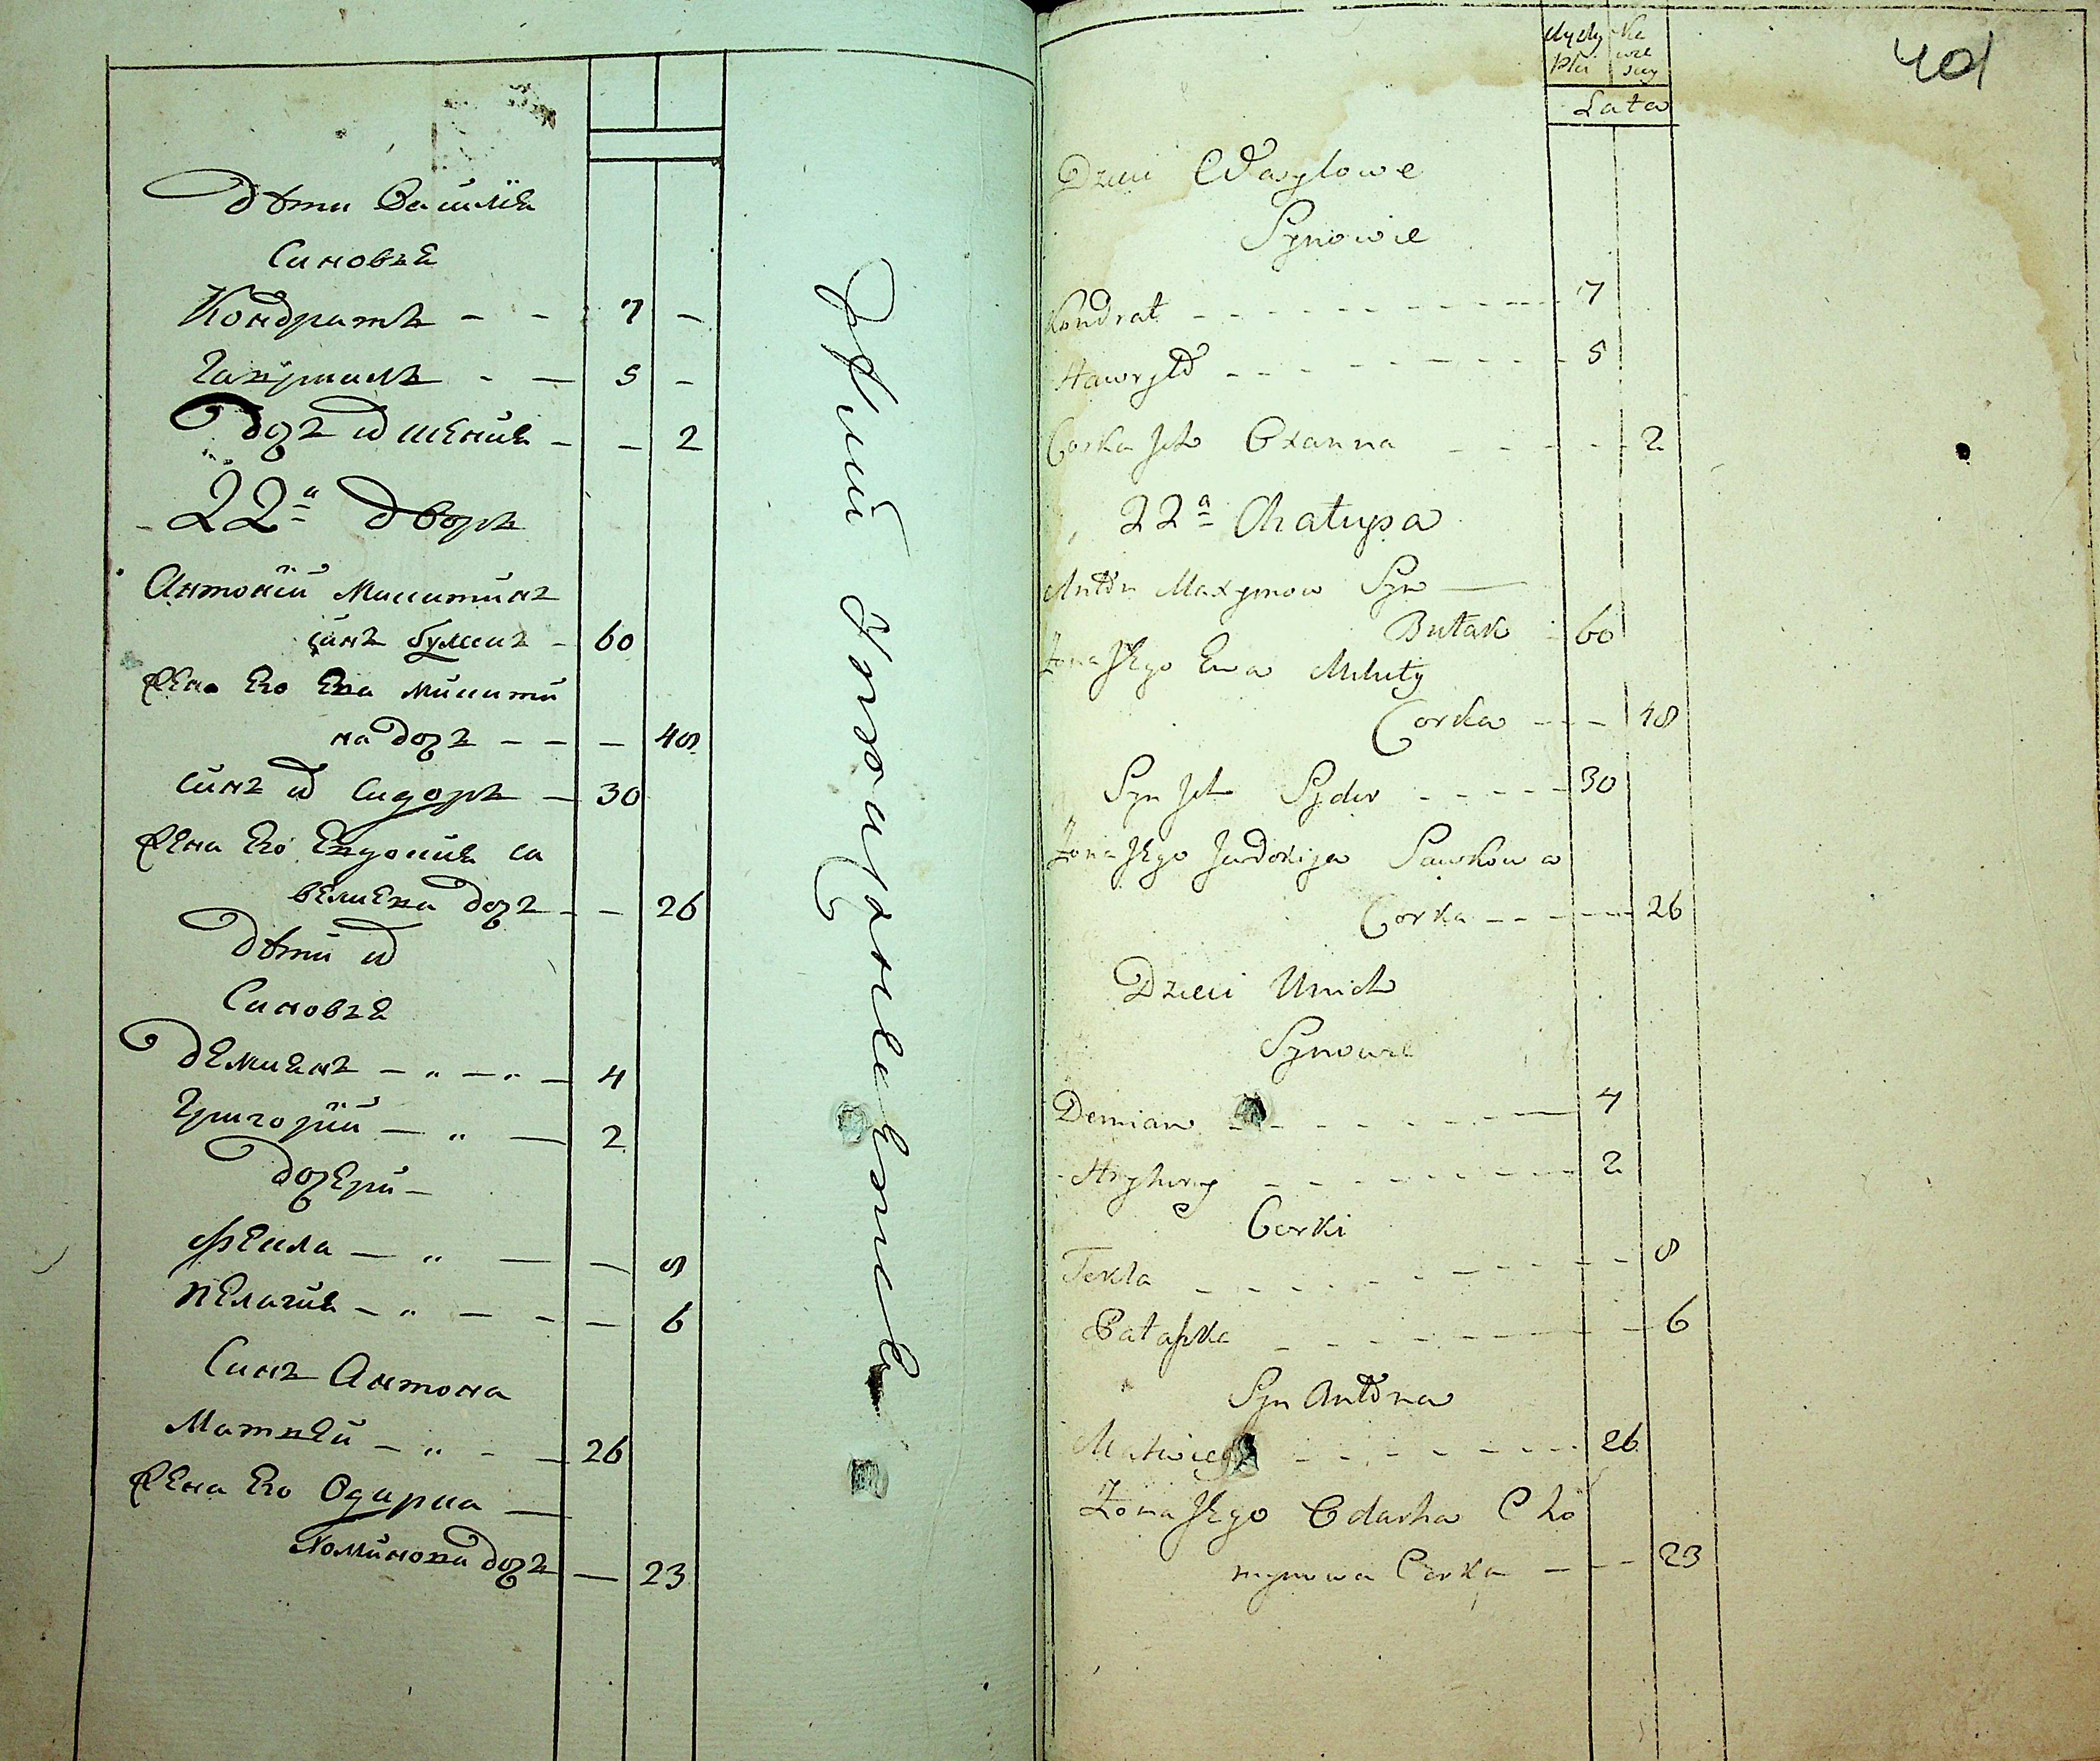 Дѣти Василія
Синовья
Кондратъ - - 7 -
Гавриилъ - - 5 -
Дочь их Ксенія - - 2
22а Дворъ
Антоній Микитинъ
синъ Булакъ - 60
Жена Его Ева Микити
на дочь - - - 48
синъ их Сидоръ - 30
Жена Его Евдокия Са
велиева дочь - - 26
Дѣти их
Синовья
Демиянъ - „ - „ - 4
Григорий - „ - 2
Дочери -
Фекла - „ - - 8
Пелагия - „ - - - 6
Синъ Антона
Матвей - „ - - 26
Жена Его Одарка -
Хомикова дочь - 23
401
Męzy Nie
Płci wie
sciey
Lata
Dzieci Wasylowe
Synowie
Kondrat 7
Hawryło 5
Corka Ich Oxanna 2
22a Chałupa
Anton Maxymow Syn
Butak 60
Żona Jego Ewa Mikity
Corka 48
Syn Ich Sydor 30
Żona Jego Jwdokija Sawkowa
Corka 26
Dzieci Unich
Synowie
Demian 4
Hryhory 2
Corki
Tekla 8
Patashka 6
Syn Antona
Matwiey 26
Żona Jego Odarka Cho
mynowa Corka 23